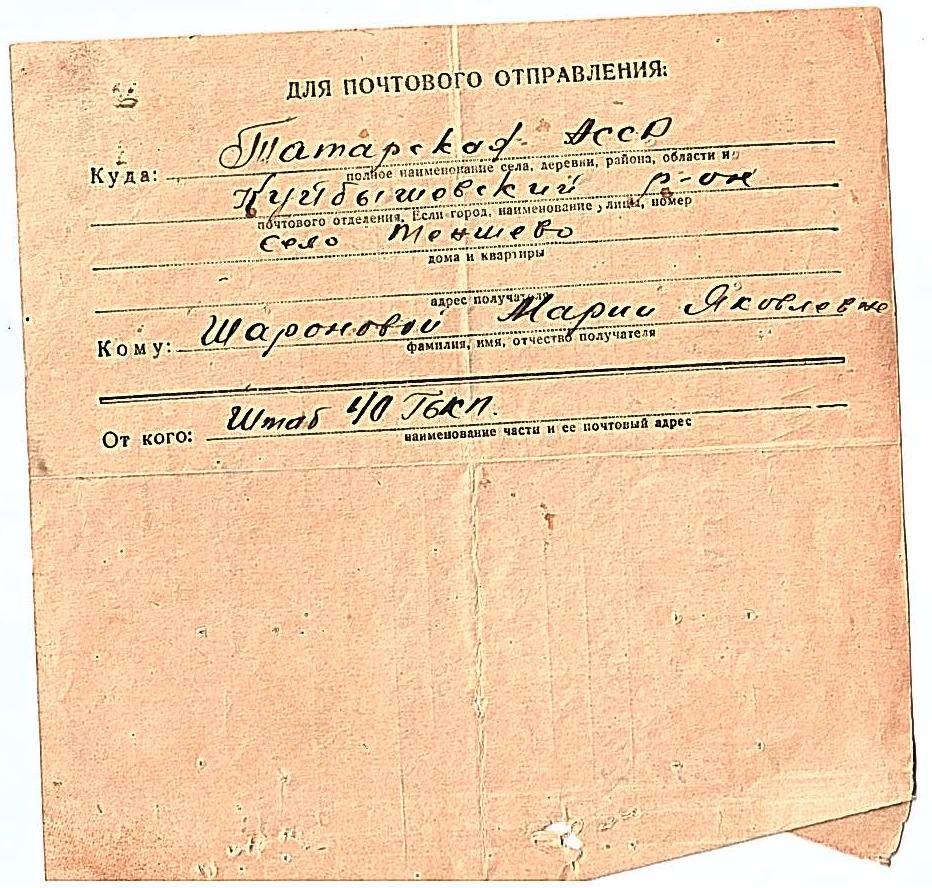 ДЛЯ ПОЧТОВОГО ОТПРАВЛЕНИЯ:
Куда: Татарская АССР
полное наименование села, деревни, района, области и
Куйбышевский р-он
почтового отделения. Если город, наименование улицы, номер
село Теншево
дома и квартиры
адрес получателя
Кому: Шароновой Марии Яковлевне
фамилия, имя, отчество получателя
От кого: Штаб
наименование части и ее почтовый адрес